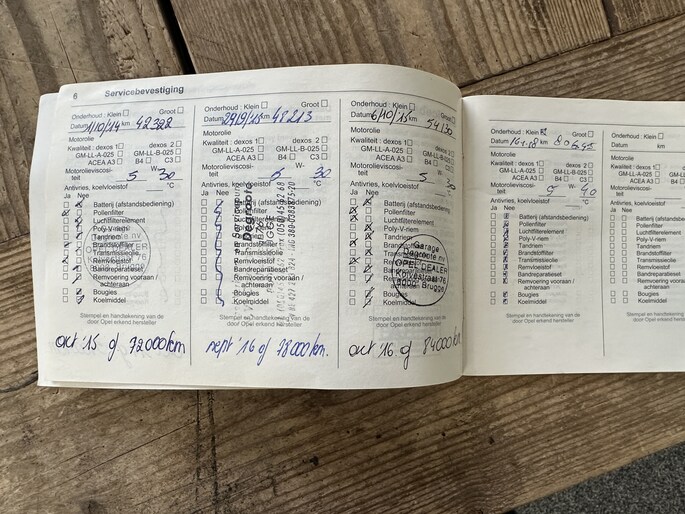 6 Servicebevestiging
Onderhoud : Klein Groot
Datum 1/10/14 km 42322
Motorolie
Kwaliteit : dexos 1 dexos 2
GM-LL-A-025 GM-LL-B-025
ACEA A3 B4 C3
Motorolieviscosi- W-
teit 5 30
Antivries, koelvloeistof °C
Ja Nee
Batterij (afstandsbediening)
Pollenfilter
Luchtfilterelement
Poly-V-riem
Tandriem
Brandstoffilter
Transmissieolie
Remvloeistof
Bandreparatieset
Remvoering vooraan /
achteraan
Bougies
Koelmiddel
Stempel en handtekening van de
door Opel erkend hersteller
oct '15 of 72000km
Onderhoud : Klein Groot
Datum km 48213
Motorolie
Kwaliteit : dexos 1 dexos 2
GM-LL-A-025 GM-LL-B-025
ACEA A3 B4 C3
Motorolieviscosi- W-
teit 5 30
Antivries, koelvloeistof °C
Ja Nee
Batterij (afstandsbediening)
Pollenfilter
Luchtfilterelement
Poly-V-riem
Tandriem
Brandstoffilter
Transmissieolie
Remvloeistof
Bandreparatieset
Remvoering vooraan /
achteraan
Bougies
Koelmiddel
Degroote
Stempel en handtekening van de
door Opel erkend hersteller
sept '16 of 78000km.
Onderhoud : Klein Groot
Datum 6/10/15 km 54130
Motorolie
Kwaliteit : dexos 1 dexos 2
GM-LL-A-025 GM-LL-B-025
ACEA A3 B4 C3
Motorolieviscosi- W-
teit 5 30
Antivries, koelvloeistof °C
Ja Nee
Batterij (afstandsbediening)
Pollenfilter
Luchtfilterelement
Poly-V-riem
Tandriem
Brandstoffilter
Transmissieolie
Remvloeistof
Bandreparatieset
Remvoering vooraan /
achteraan
Bougies
Koelmiddel
Garage
Degroote nv
OPEL DEALER
Brugge
Stempel en handtekening van de
door Opel erkend hersteller
oct '16 of 84000km
Onderhoud : Klein Groot
Datum km
Motorolie
Kwaliteit : dexos 1 dexos 2
GM-LL-A-025 GM-LL-B-025
ACEA A3 B4 C3
Motorolieviscosi- W-
teit 5 40
Antivries, koelvloeistof °C
Ja Nee
Batterij (afstandsbediening)
Pollenfilter
Luchtfilterelement
Poly-V-riem
Tandriem
Brandstoffilter
Transmissieolie
Remvloeistof
Bandreparatieset
Remvoering vooraan /
achteraan
Bougies
Koelmiddel
Stempel en handtekening van de
door Opel erkend hersteller
Onderhoud : Klein
Datum km
Motorolie
Kwaliteit : dexos 1
GM-LL-A-025
ACEA A3
Motorolieviscosi-
teit
Antivries, koelvloeistof
Ja Nee
Batterij (afstandsbediening)
Pollenfilter
Luchtfilterelement
Poly-V-riem
Tandriem
Brandstoffilter
Transmissieolie
Remvloeistof
Bandreparatieset
Remvoering vooraan /
achteraan
Bougies
Koelmiddel